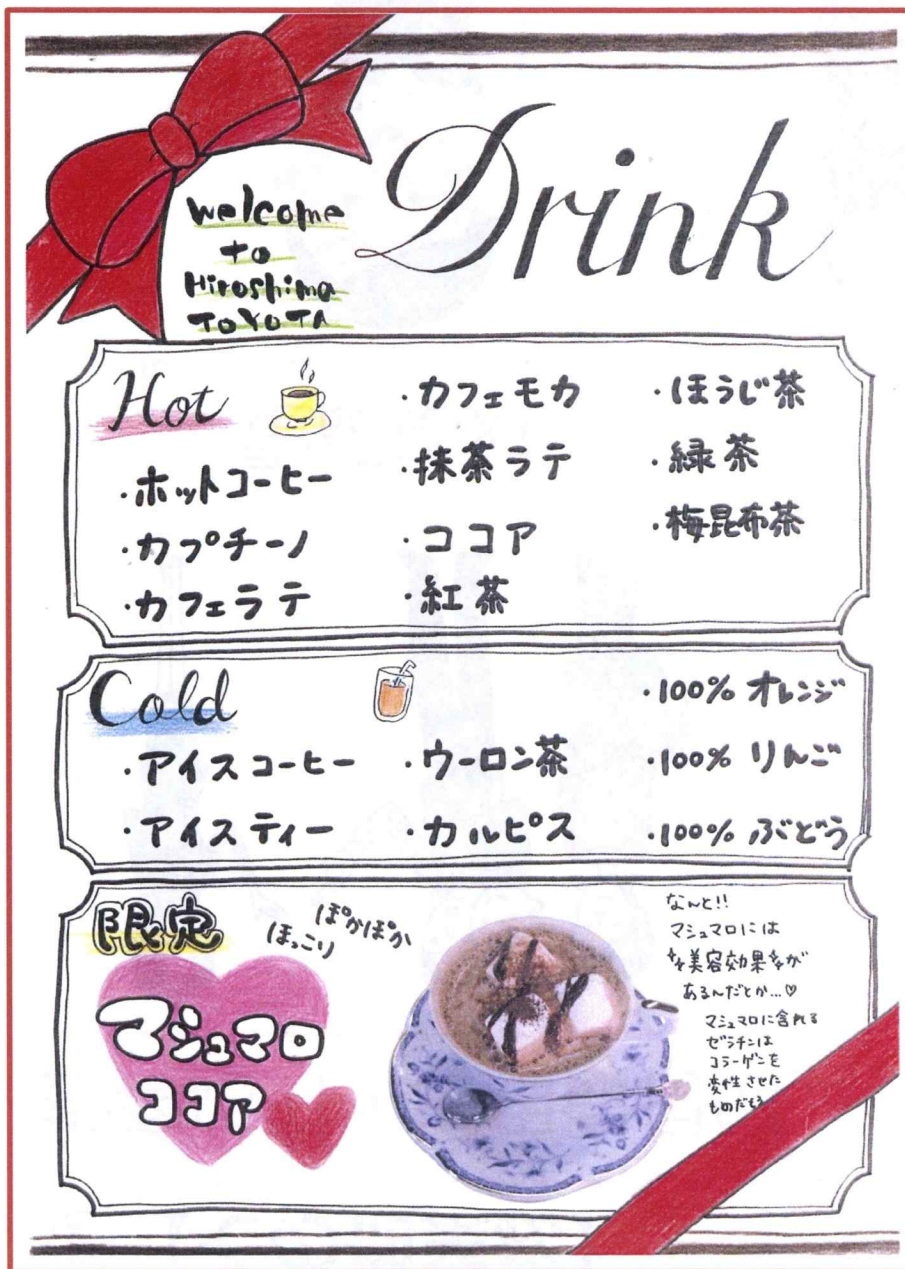 Drink
welcome
to
Hiroshima
TOYOTA
Hot
・ホットコーヒー
・カプチーノ
・カフェラテ
・カフェモカ
・抹茶ラテ
・ココア
・紅茶
・ほうじ茶
・緑茶
・梅昆布茶
Cold
・アイスコーヒー
・アイスティー
・ウーロン茶
・カルピス
・100% オレンジ
・100% りんご
・100% ぶどう
限定
ほっこり
ぽかぽか
マシュマロ
ココア
なんと!!
マシュマロには
美容効果が
あるんだとか…♡
マシュマロに含れる
ゼラチンは
コラーゲンを
変性させた
ものだそう